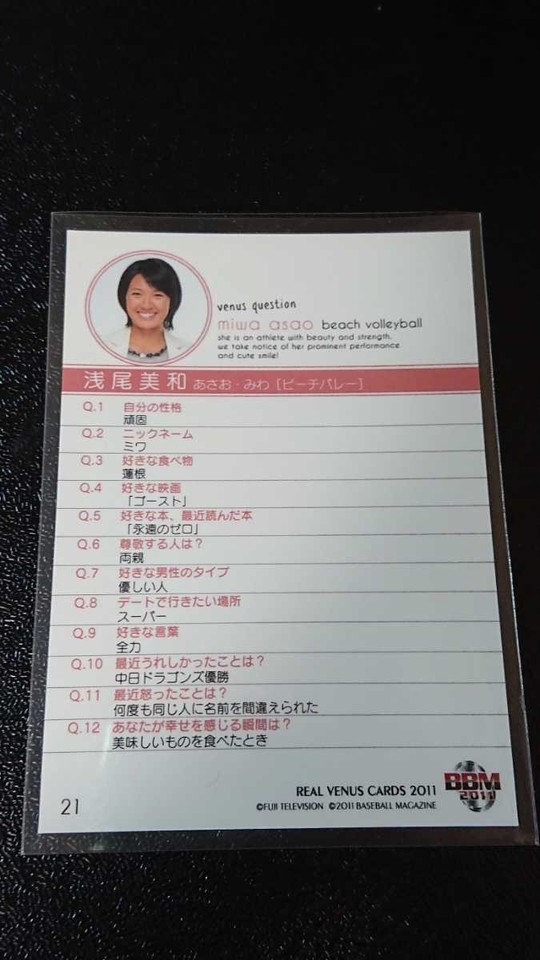 venus question
miwa asao beach volleyball
she is an athlete with beauty and strength.
we take notice of her prominent performance
and cute smile!
浅尾美和 あさお・みわ [ビーチバレー]
Q.1 自分の性格
頑固
Q.2 ニックネーム
ミワ
Q.3 好きな食べ物
蓮根
Q.4 好きな映画
「ゴースト」
Q.5 好きな本、最近読んだ本
「永遠のゼロ」
Q.6 尊敬する人は?
両親
Q.7 好きな男性のタイプ
優しい人
Q.8 デートで行きたい場所
スーパー
Q.9 好きな言葉
全力
Q.10 最近うれしかったことは?
中日ドラゴンズ優勝
Q.11 最近怒ったことは?
何度も同じ人に名前を間違えられた
Q.12 あなたが幸せを感じる瞬間は?
美味しいものを食べたとき
21
REAL VENUS CARDS 2011
©FUJI TELEVISION ©2011 BASEBALL MAGAZINE
BBM
2011